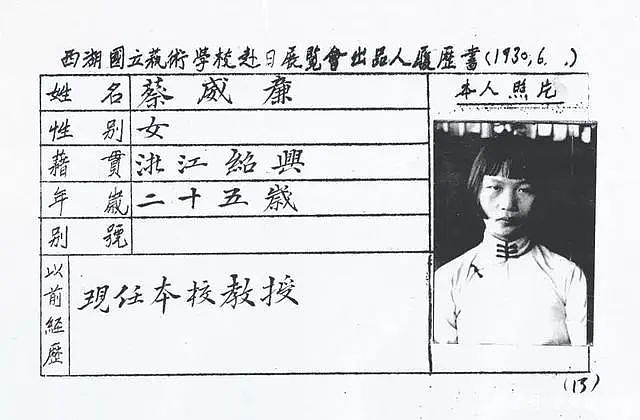 西湖國立藝術學校赴日展覽會出品人履歷書(1930,6. .)
姓名 蔡威廉
本人照片
性別 女
籍貫 浙江紹興
年歲 二十五歲
別號
以前經歷 現任本校教授
(13)